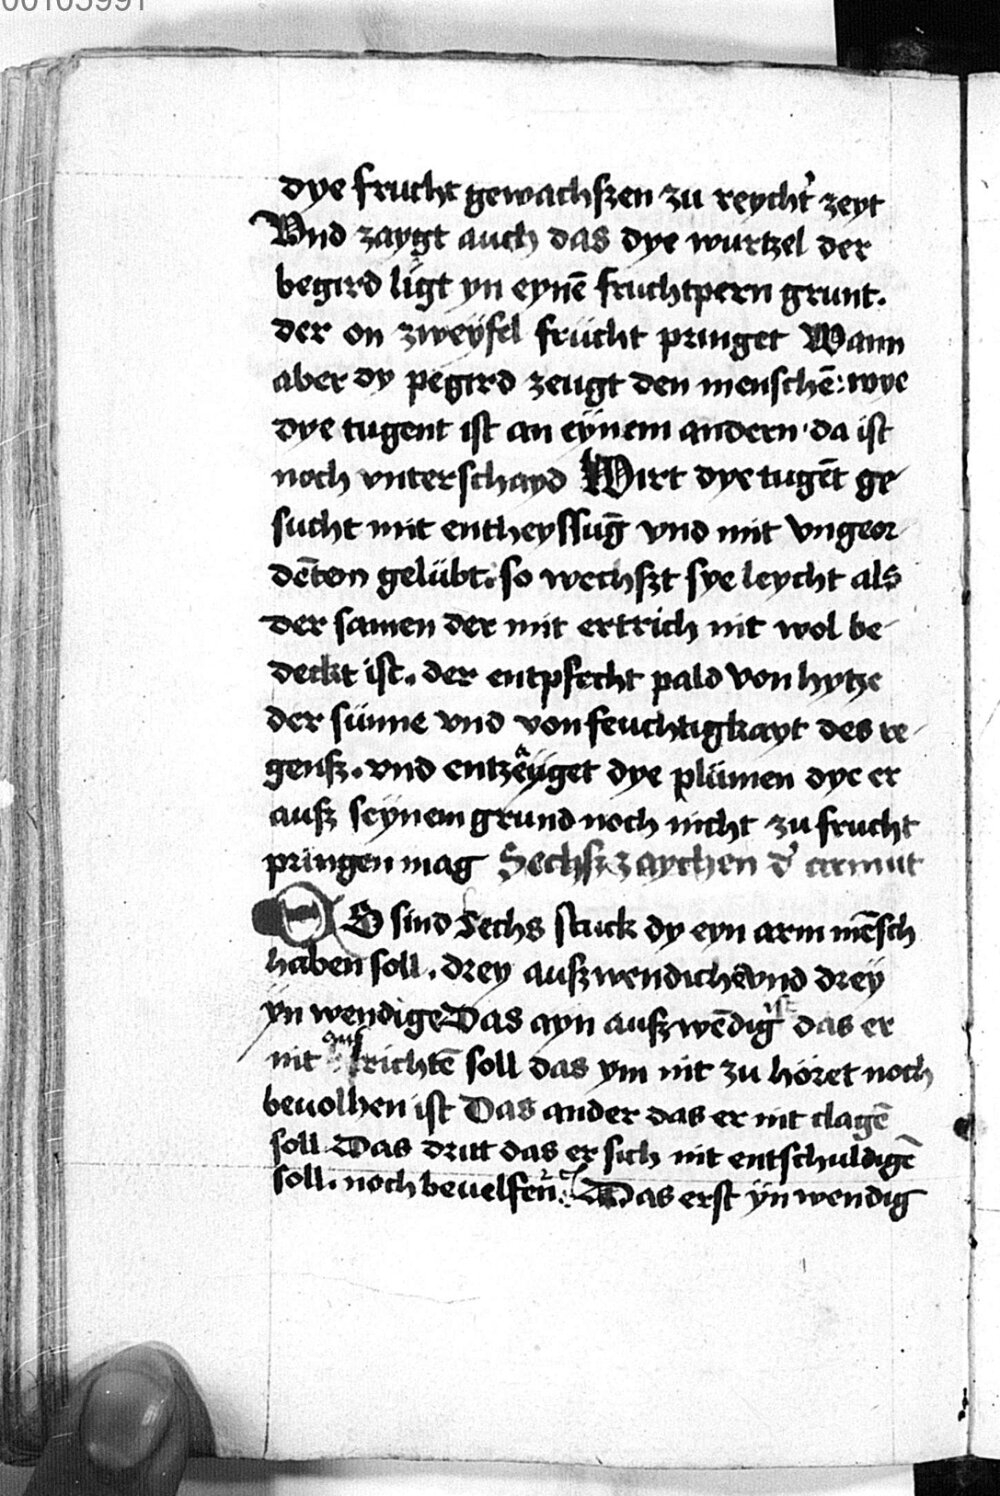 00105991
dye frucht gewachszen zu reycht᷒ zeyt
Vnd zaygt auch das dye wurtzel der
begird ligt yn eynē fruchtpern grunt.
der on zweyfel frücht pringet Wann
aber dy pegird zeugt den menschē: wye
dye tugent ist an eÿnem andern · da ist
noch vnterschayd Wirt dye tugēt ge
sucht mit entheyssūg vnd mit vngeor-
dēten gelübt. so wechszt sye leycht als
der samen der mit ertrich nit wol be-
deckt ist. der entpfecht pald von hytze
der sünne vnd von feuchtigkayt des re-
gensz. vnd entzeÿget dye plümen dye er
ausz seynem grund noch nicht zu frucht
pringen mag Sechsz zaychen d᷒ armut
ES sind sechs stuck dy eyn arm mēsch
haben soll. drey auszwendiche vnd dreÿ
ÿn wendige Das ayn auszwēdig ist das er
nit aus richtē soll das ym nit zu höret noch
beuolhen ist Das ander das er nit clagē
soll Das dritt das er sich nit entschuldigē
soll. noch beuelfen. Das erst ÿn wendig